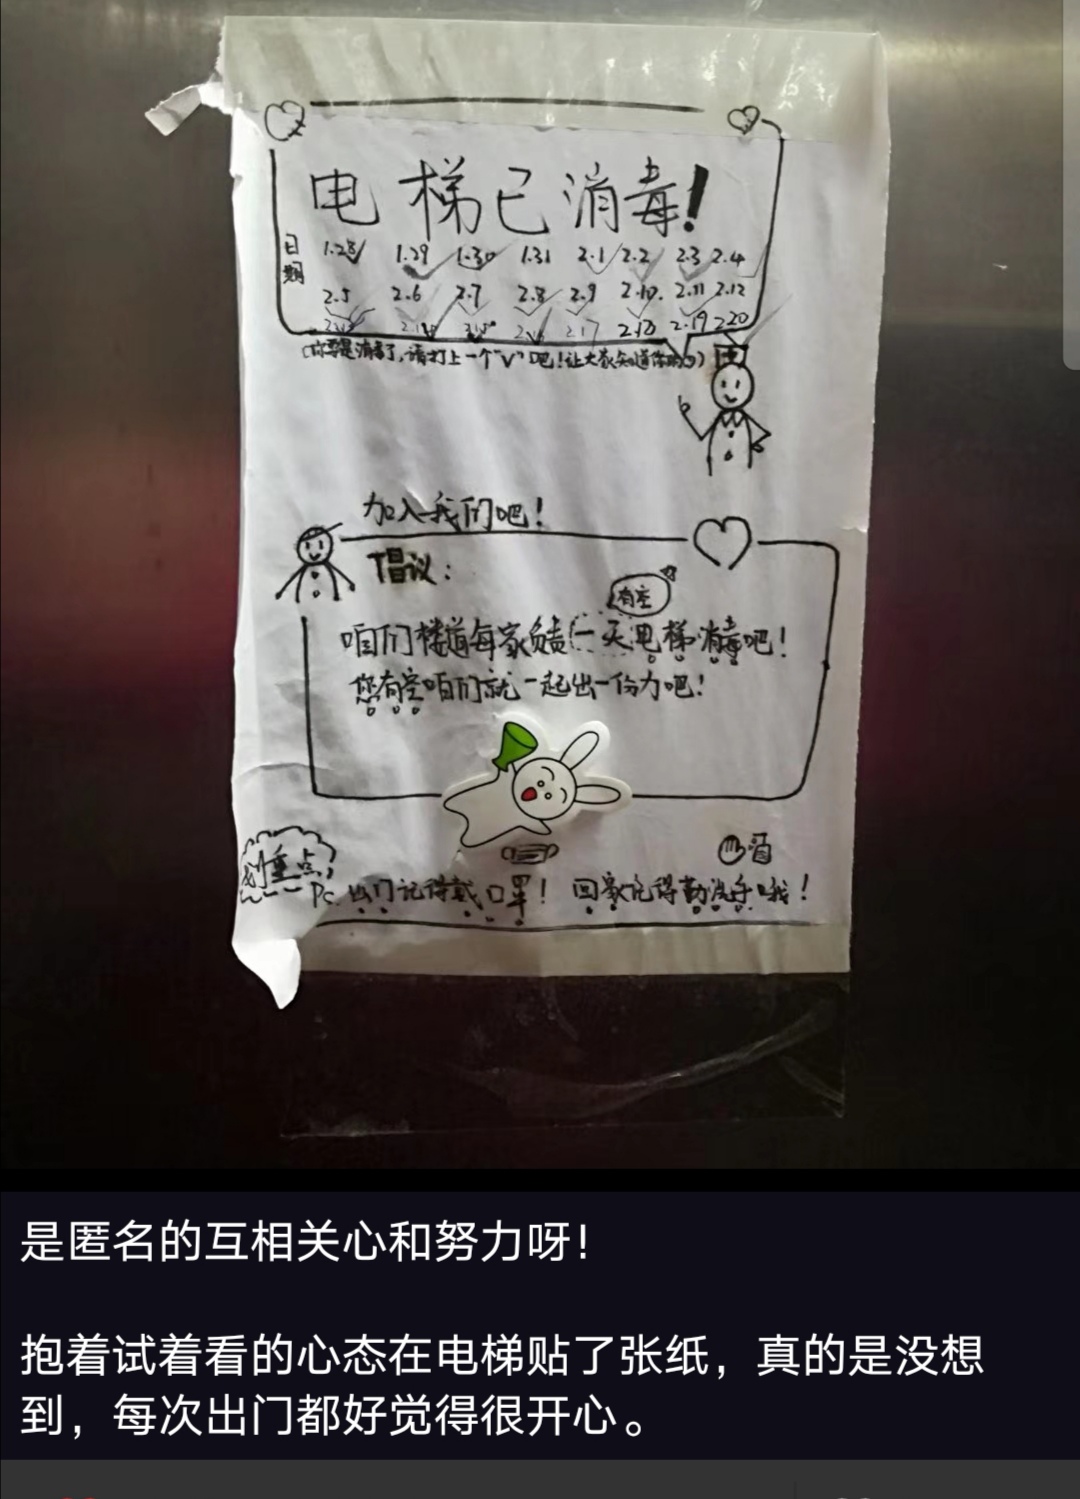 电梯已消毒!
日期
1.28 1.29 1.30 1.31 2.1 2.2 2.3 2.4
2.5 2.6 2.7 2.8 2.9 2.10. 2.11 2.12
2.17 2.18 2.19 2.20
(你要是消毒了,请打上一个"√"吧!让大家知道)
加入我们吧!
倡议:
有空
咱们楼道每家负责一天电梯消毒吧!
您有空咱们就一起出一份力吧!
划重点,
Ps. 出门记得戴口罩! 回家记得勤洗手哦!
是匿名的互相关心和努力呀!
抱着试着看的心态在电梯贴了张纸，真的是没想
到，每次出门都好觉得很开心。